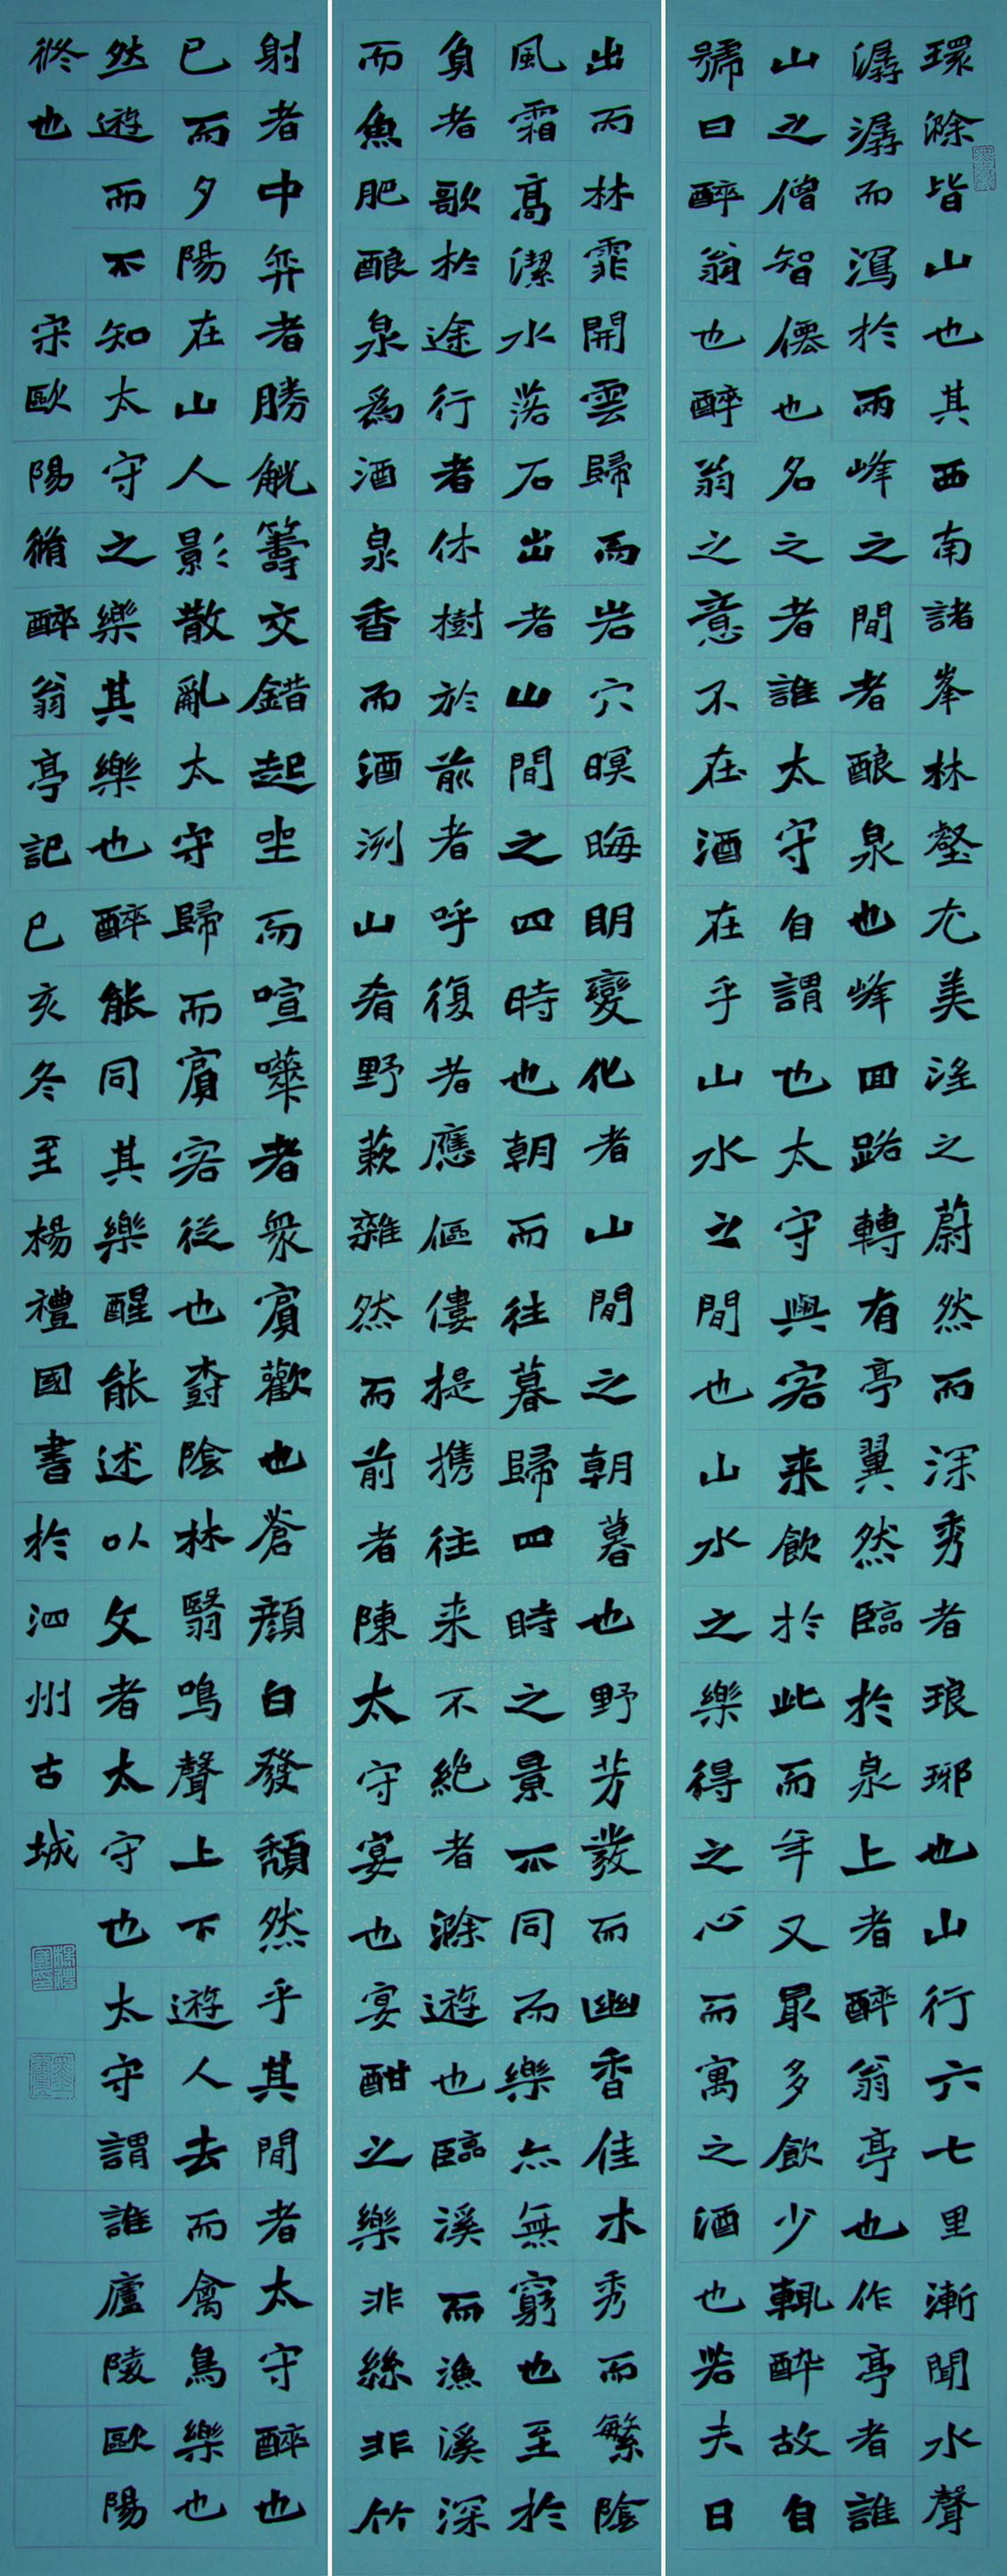 環滁皆山也其西南諸峯林壑尤美淫之蔚然而深秀者琅琊也山行六七里漸聞水聲
潺潺而瀉於兩峰之間者酿泉也峰回路轉有亭翼然臨於泉上者醉翁亭也作亭者誰
山之僧智僊也名之者誰太守自謂也太守與客来飲於此而年又最多飲少輒醉故自
號曰醉翁也醉翁之意不在酒在乎山水之間也山水之樂得之心而寓之酒也若夫日
出而林霏開雲歸而岩穴暝晦明變化者山間之朝暮也野芳發而幽香佳木秀而繁陰
風霜高潔水落石出者山間之四時也朝而往暮歸四時之景不同而樂亦無窮也至於
負者歌於途行者休樹於前者呼復者應傴僂提携往来不絶者滁遊也臨溪而漁溪深
而魚肥酿泉爲酒泉香而酒洌山肴野蔌雜然而前者陳太守宴也宴酣之樂非絲非竹
射者中弈者勝觥籌交錯起坐而喧嘩者衆賓歡也蒼顔白發頽然乎其間者太守醉也
已而夕陽在山人影散亂太守歸而賓客從也樹陰林翳鳴聲上下遊人去而禽鳥樂也
然遊而不知太守之樂其樂也醉能同其樂醒能述以文者太守也太守謂誰廬陵歐陽
脩也 宋歐陽脩醉翁亭記己亥冬至楊禮國書於泗州古城